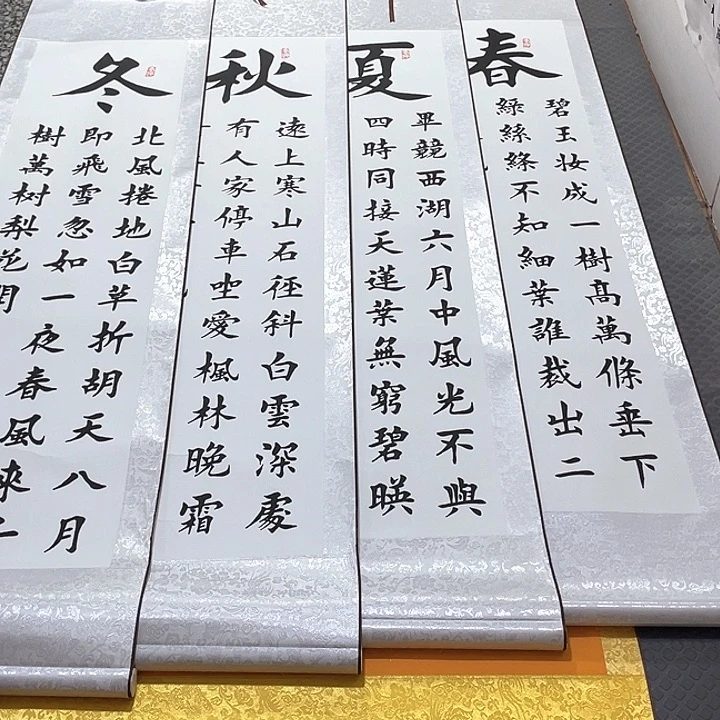 春
碧玉妆成一樹髙萬條垂下
緑絲絛不知細葉誰裁出二
夏
畢競西湖六月中風光不與
四時同接天蓮葉無窮碧暎
秋
遠上寒山石径斜白雲深處
有人家停車坐愛楓林晚霜
冬
北風捲地白草折胡天八月
即飛雪忽如一夜春風來千
樹萬树梨花開